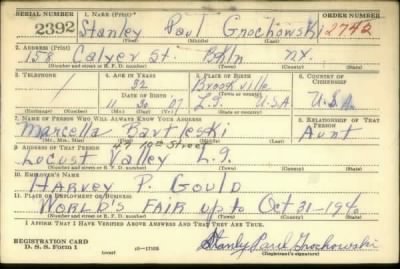 SERIAL NUMBER 1. NAME (Print) ORDER NUMBER
2392 Stanley Paul Grochowski 2742
(First) (Middle) (Last)
2. ADDRESS (Print)
158 Calyer St. Bkln N.Y.
(Number and street or R. F. D. number) (Town) (County) (State)
3. TELEPHONE 4. AGE IN YEARS 5. PLACE OF BIRTH 6. COUNTRY OF CITIZENSHIP
32 Brookville
DATE OF BIRTH (Town or county)
11 30 07 L.I. U.S.A U.S.A.
(Exchange) (Number) (Mo.) (Day) (Yr.) (State or country)
7. NAME OF PERSON WHO WILL ALWAYS KNOW YOUR ADDRESS 8. RELATIONSHIP OF THAT PERSON
Marcella Bartleski Aunt
(Mr., Mrs., Miss) (First) (Middle) (Last)
9. ADDRESS OF THAT PERSON 49 10th Street
Locust Valley L.I.
(Number and street or R. F. D. number) (Town) (County) (State)
10. EMPLOYER'S NAME
HARVEY P. GOULD
11. PLACE OF EMPLOYMENT OR BUSINESS
WORLD'S FAIR up to Oct 31-1940
(Number and street or R. F. D. number) (Town) (County) (State)
I AFFIRM THAT I HAVE VERIFIED ABOVE ANSWERS AND THAT THEY ARE TRUE.
REGISTRATION CARD
D. S. S. Form 1 Stanley Paul Grochowski
(Registrant's signature)